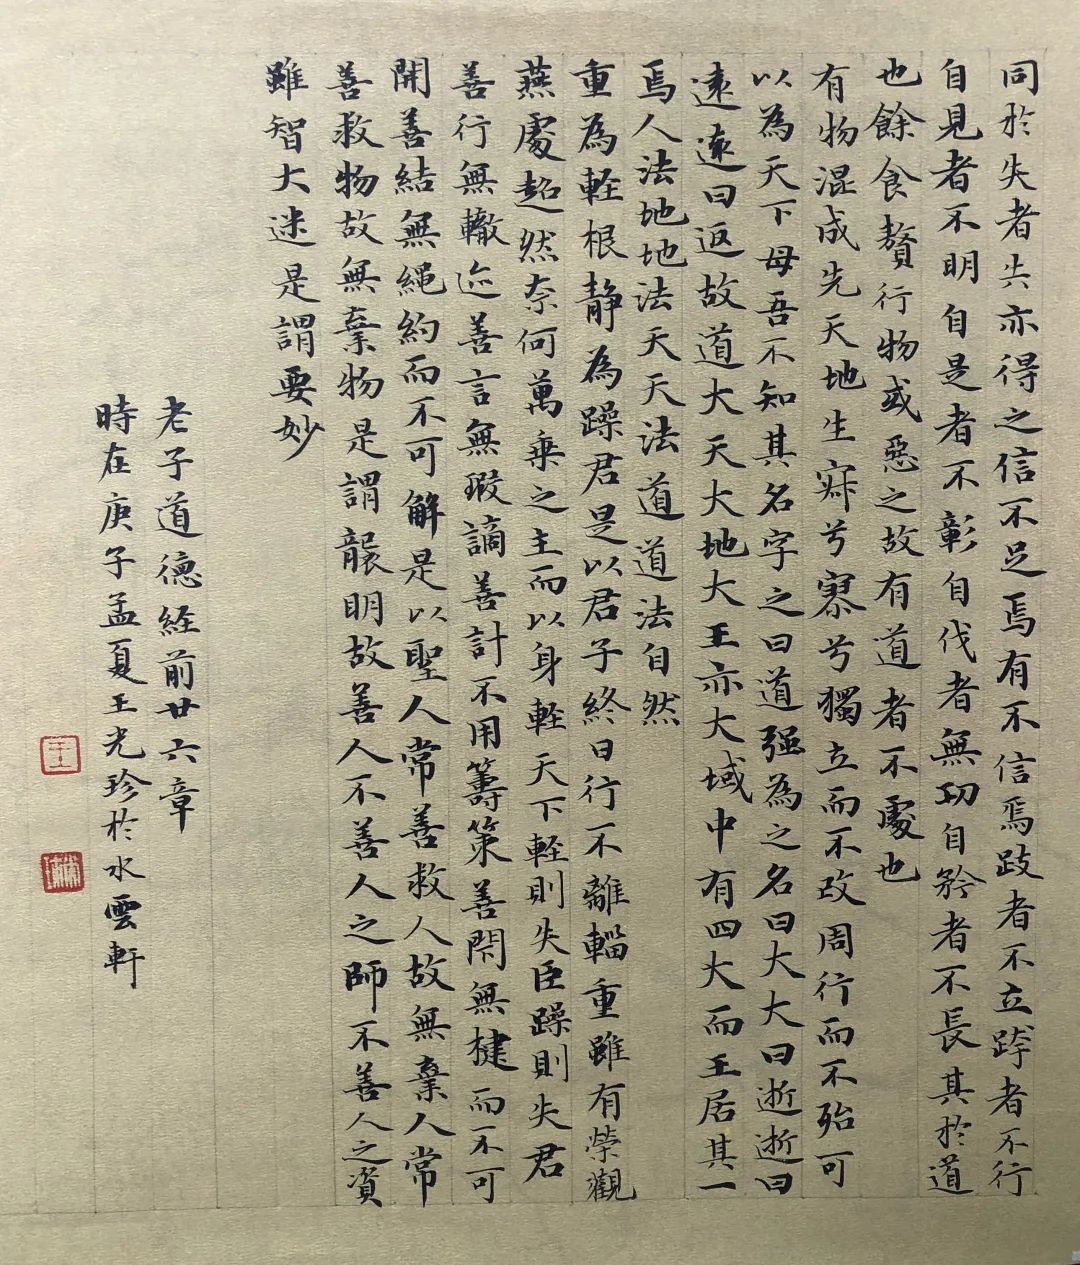 同於失者失亦得之信不足焉有不信焉跂者不立跨者不行
自見者不明自是者不彰自伐者無功自矜者不長其於道
也餘食贅行物或惡之故有道者不處也
有物混成先天地生寂兮寥兮獨立而不改周行而不殆可
以為天下母吾不知其名字之曰道强為之名曰大大曰逝逝曰
遠遠曰返故道大天大地大王亦大域中有四大而王居其一
焉人法地地法天天法道道法自然
重為輕根静為躁君是以君子終日行不離輜重雖有榮觀
燕處超然奈何萬乗之主而以身輕天下輕則失臣躁則失君
善行無轍迹善言無瑕謫善計不用籌策善閉無楗而不可
開善結無繩約而不可解是以聖人常善救人故無棄人常
善救物故無棄物是謂襲明故善人不善人之師不善人之資
雖智大迷是謂要妙
老子道德経前廿六章
時在庚子孟夏王光珍於水雲軒
王